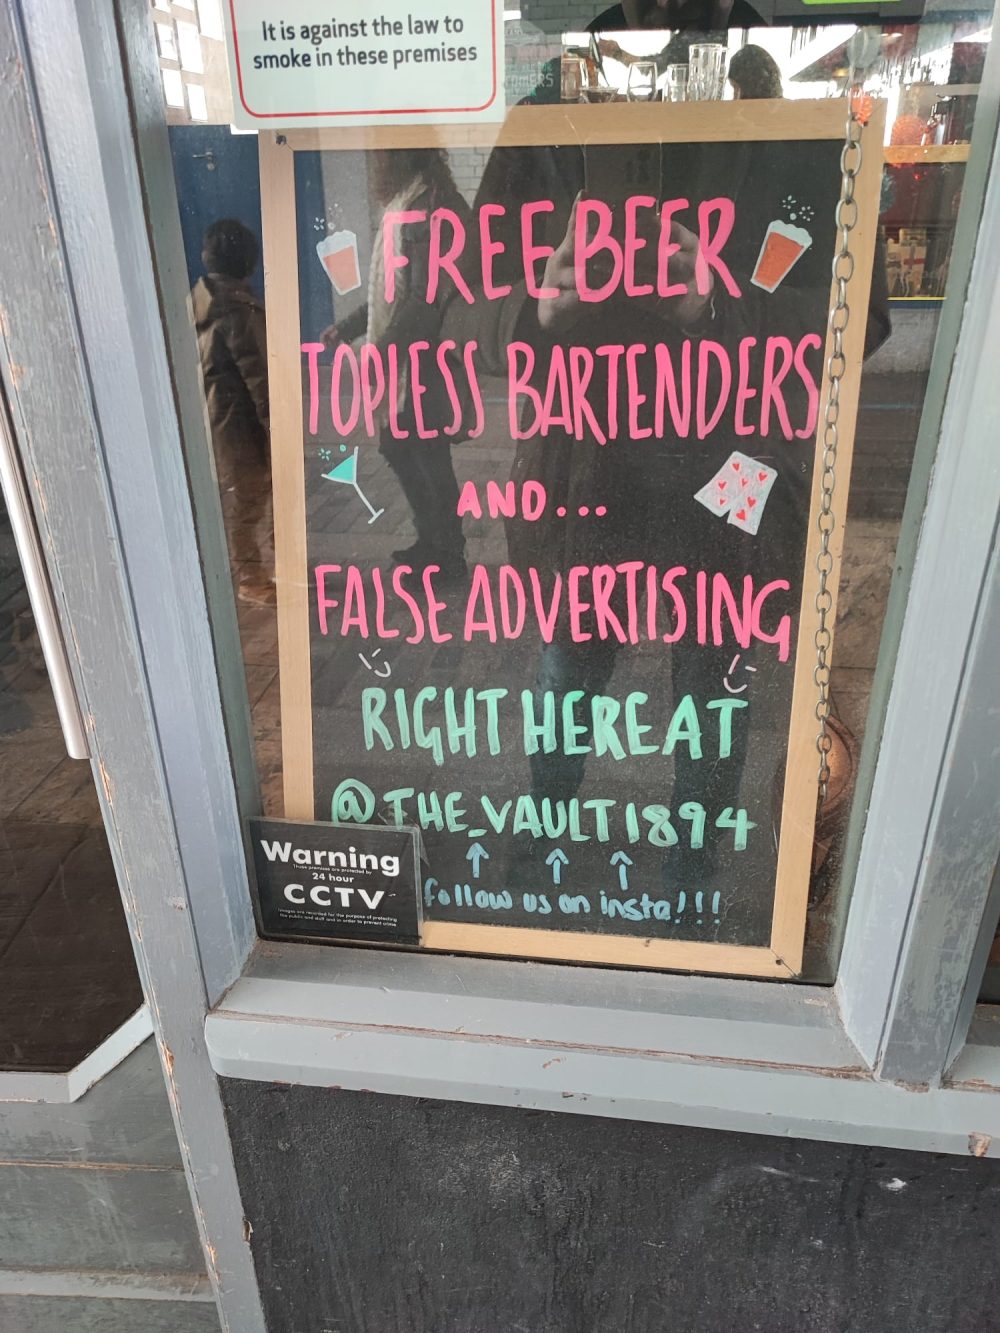 It is against the law to
smoke in these premises
FREE BEER
TOPLESS BARTENDERS
AND...
FALSE ADVERTISING
RIGHT HERE AT
@THE_VAULT1894
follow us on insta!!!
Warning
These premises are protected by
24 hour
CCTV
Images are recorded for the purpose of protecting
the public and staff and in order to prevent crime